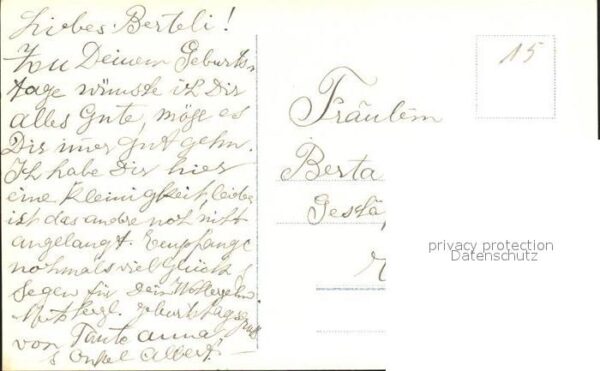 Liebes Berteli!
Zu Deinem Geburts-
tage wünste ich Dir
alles Gute, möge es
Dir imer gut gehn.
Ich habe Dir hier
eine Kleinigkeit, leider
ist das andre noh niht
angelangt. Empfange
nohmals viel Glück,
Segen für Dein
herzl. geburtstags
von Tante Anna
& Onkel Albert
15
Fräulein
Berta
privacy protection
Datenschutz